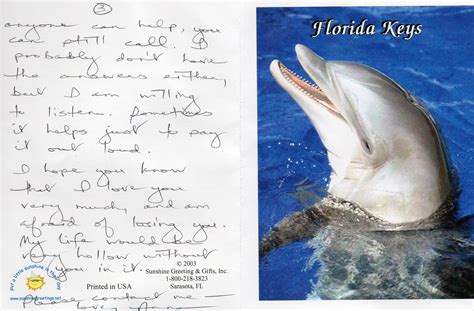 3
anyone can help, you
can still call. I
probably don't have
the answers either,
but I am willing
to listen. Sometimes
it helps just to say
it out loud.
I hope you know
that I love you
very much, and am
afraid of losing you.
My life would be
very hollow without
you in it.
Please contact me —
Love,
put a little sunshine in their day
www.sunshinegreetings.net
Printed in USA
© 2003
Sunshine Greeting & Gifts, Inc.
1-800-218-3823
Sarasota, FL
Florida Keys